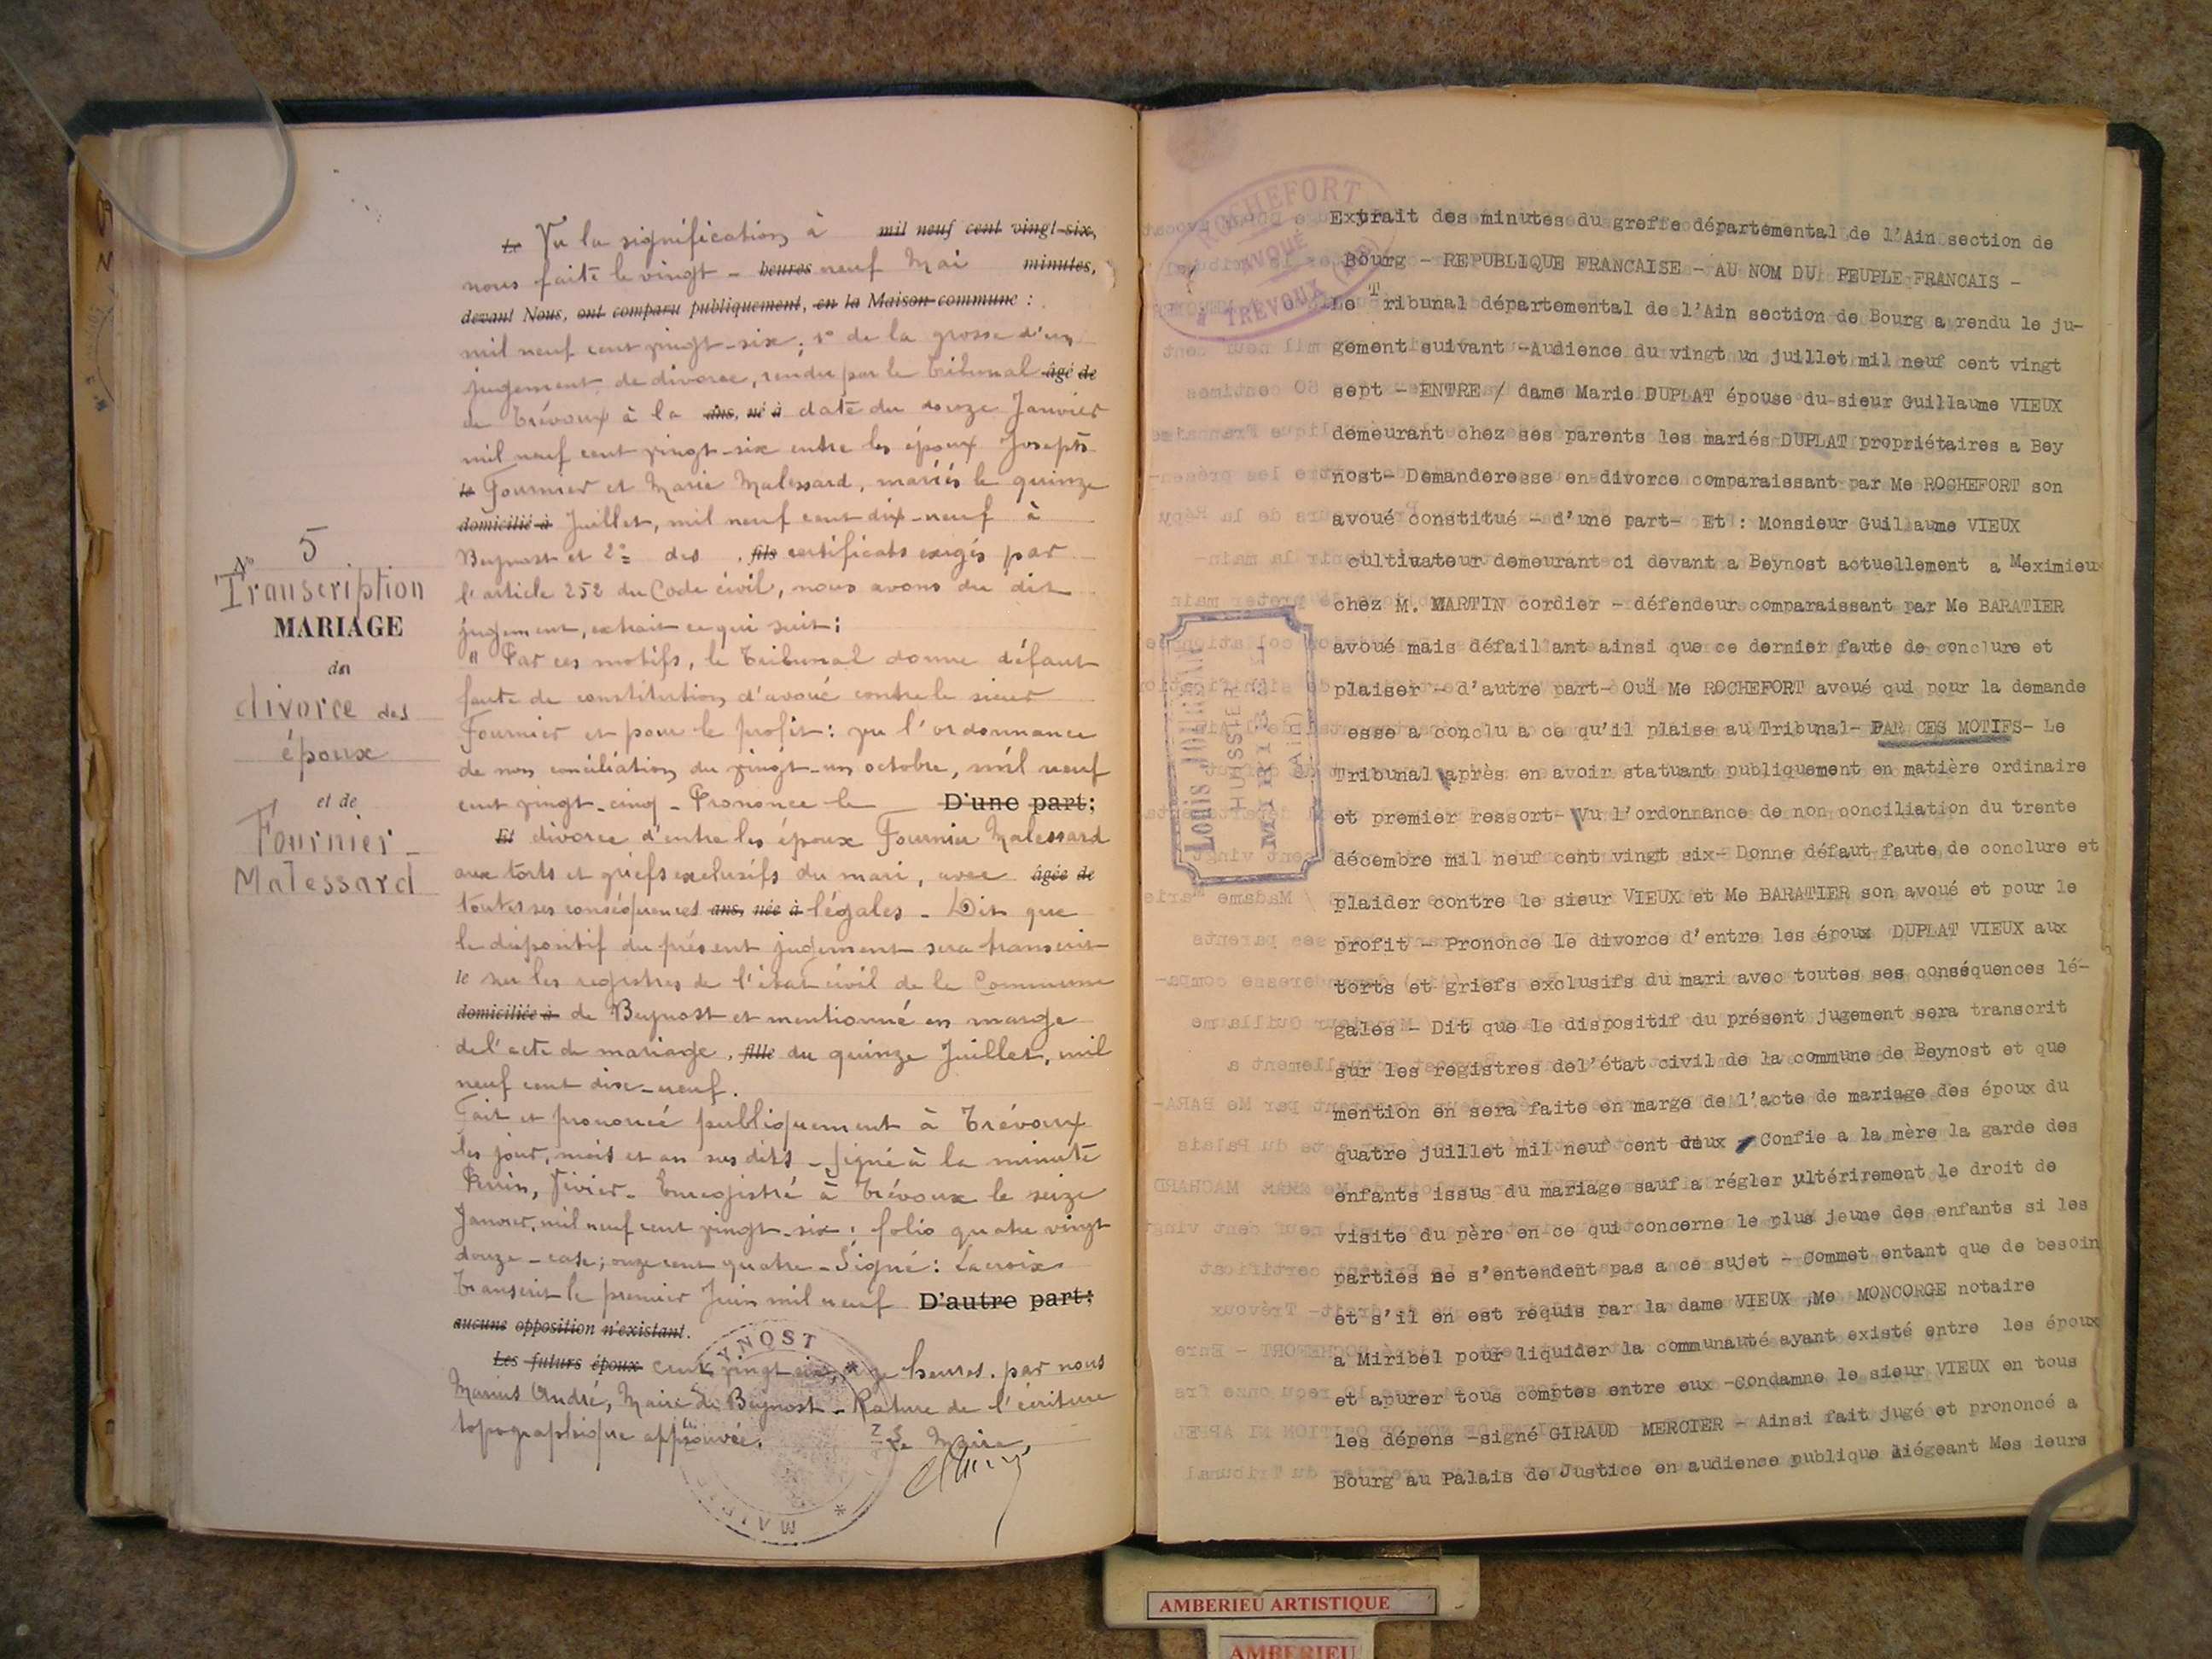 N° 5
Transcription
MARIAGE
du
divorce des
époux
et de
Fournier -
Malessard
Le Vu la signification, à mil neuf cent vingt-six,
nous faite le vingt - heures neuf Mai minutes,
devant Nous, ont comparu publiquement, en la Maison commune :
mil neuf cent vingt-six; 1° de la grosse d'un
jugement de divorce, rendu par le Tribunal âgé de
de Trévoux à la ans, né à date du douze Janvier
mil neuf cent vingt-six entre les époux Joseph
le Fournier et Marie Malessard, mariés le quinze
domicilié à Juillet, mil neuf cent dix-neuf à
Beynost et 2° des , fils certificats exigés par
l'article 252 du Code civil, nous avons du dit
jugement, extrait ce qui suit :
" Par ces motifs, le Tribunal donne défaut
faute de constitution d'avoué contre le sieur
Fournier et pour le profit : vu l'ordonnance
de non conciliation du vingt-un octobre, mil neuf
cent vingt-cinq - Prononce le D'une part;
Et divorce d'entre les époux Fournier Malessard
aux torts et griefs exclusifs du mari, avec âgée de
toutes ses conséquences ans, née à légales - Dit que
le dispositif du présent jugement sera transcrit
le sur les registres de l'état civil de la Commune
domiciliée à de Beynost et mentionné en marge
de l'acte de mariage , fille du quinze Juillet, mil
neuf cent dix-neuf.
Fait et prononcé publiquement à Trévoux
les jour, mois et an sus dits - Signé à la minute
Perrin, Vivier - Enregistré à Trévoux le seize
Janvier, mil neuf cent vingt-six ; folio quatre vingt
douze - case; onze cent quatre - Signé : Lacroix
Transcrit le premier Juin mil neuf D'autre part;
aucune opposition n'existant.
Les futurs époux cent vingt six, heures. par nous
Marius André, Maire de Beynost - Rature de l'écriture
topographique approuvée.
Le Maire,
YNOST
MAIRIE
ROCHEFORT
AVOUÉ
TREVOUX (AIN)
Louis
HUISSIER
MIRIBEL
(Ain)
Extrait des minutes du greffe départemental de l'Ain section de
Bourg - REPUBLIQUE FRANCAISE - AU NOM DU PEUPLE FRANCAIS -
Le Tribunal départemental de l'Ain section de Bourg a rendu le ju-
gement suivant -Audience du vingt un juillet mil neuf cent vingt
sept - ENTRE / dame Marie DUPLAT épouse du sieur Guillaume VIEUX
demeurant chez ses parents les mariés DUPLAT propriétaires a Bey
nost- Demanderesse en divorce comparaissant par Me ROCHEFORT son
avoué constitué - d'une part- Et : Monsieur Guillaume VIEUX
cultivateur demeurant ci devant a Beynost actuellement a Meximieux
chez M. MARTIN cordier - défendeur comparaissant par Me BARATIER
avoué mais défaillant ainsi que ce dernier faute de conclure et
plaiser - d'autre part- Ouï Me ROCHEFORT avoué qui pour la demande
esse a conclu a ce qu'il plaise au Tribunal- PAR CES MOTIFS- Le
Tribunal après en avoir statuant publiquement en matière ordinaire
et premier ressort- Vu l'ordonnance de non conciliation du trente
décembre mil neuf cent vingt six- Donne défaut faute de conclure et
plaider contre le sieur VIEUX et Me BARATIER son avoué et pour le
profit - Prononce le divorce d'entre les époux DUPLAT VIEUX aux
torts et griefs exclusifs du mari avec toutes ses conséquences lé-
gales - Dit que le dispositif du présent jugement sera transcrit
sur les registres del'état civil de la commune de Beynost et que
mention en sera faite en marge de l'acte de mariage des époux du
quatre juillet mil neuf cent deux / Confie a la mère la garde des
enfants issus du mariage sauf a régler ultérirement le droit de
visite du père en ce qui concerne le plus jeune des enfants si les
parties ne s'entendent pas a ce sujet - Commet entant que de besoin
et s'il en est requis par la dame VIEUX ,Me MONCORGE notaire
a Miribel pour liquider la communauté ayant existé entre les époux
et apurer tous comptes entre eux -Condamne le sieur VIEUX en tous
les dépens -signé GIRAUD MERCIER - Ainsi fait jugé et prononcé a
Bourg au Palais de Justice en audience publique siégeant Messieurs
AMBERIEU ARTISTIQUE
AMBERIEU